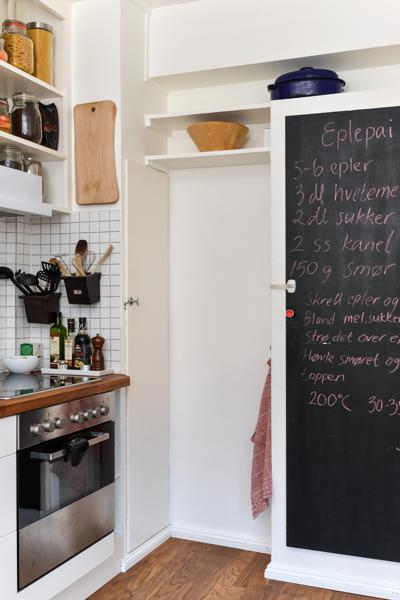 Eplepai
5-6 epler
3 dl hveteme
2 dl sukker
2 ss kanel
150 g smør
Skrell epler og
Bland mel.sukke
Strø det over e
Høvle smøret og
toppen
200°C 30-3